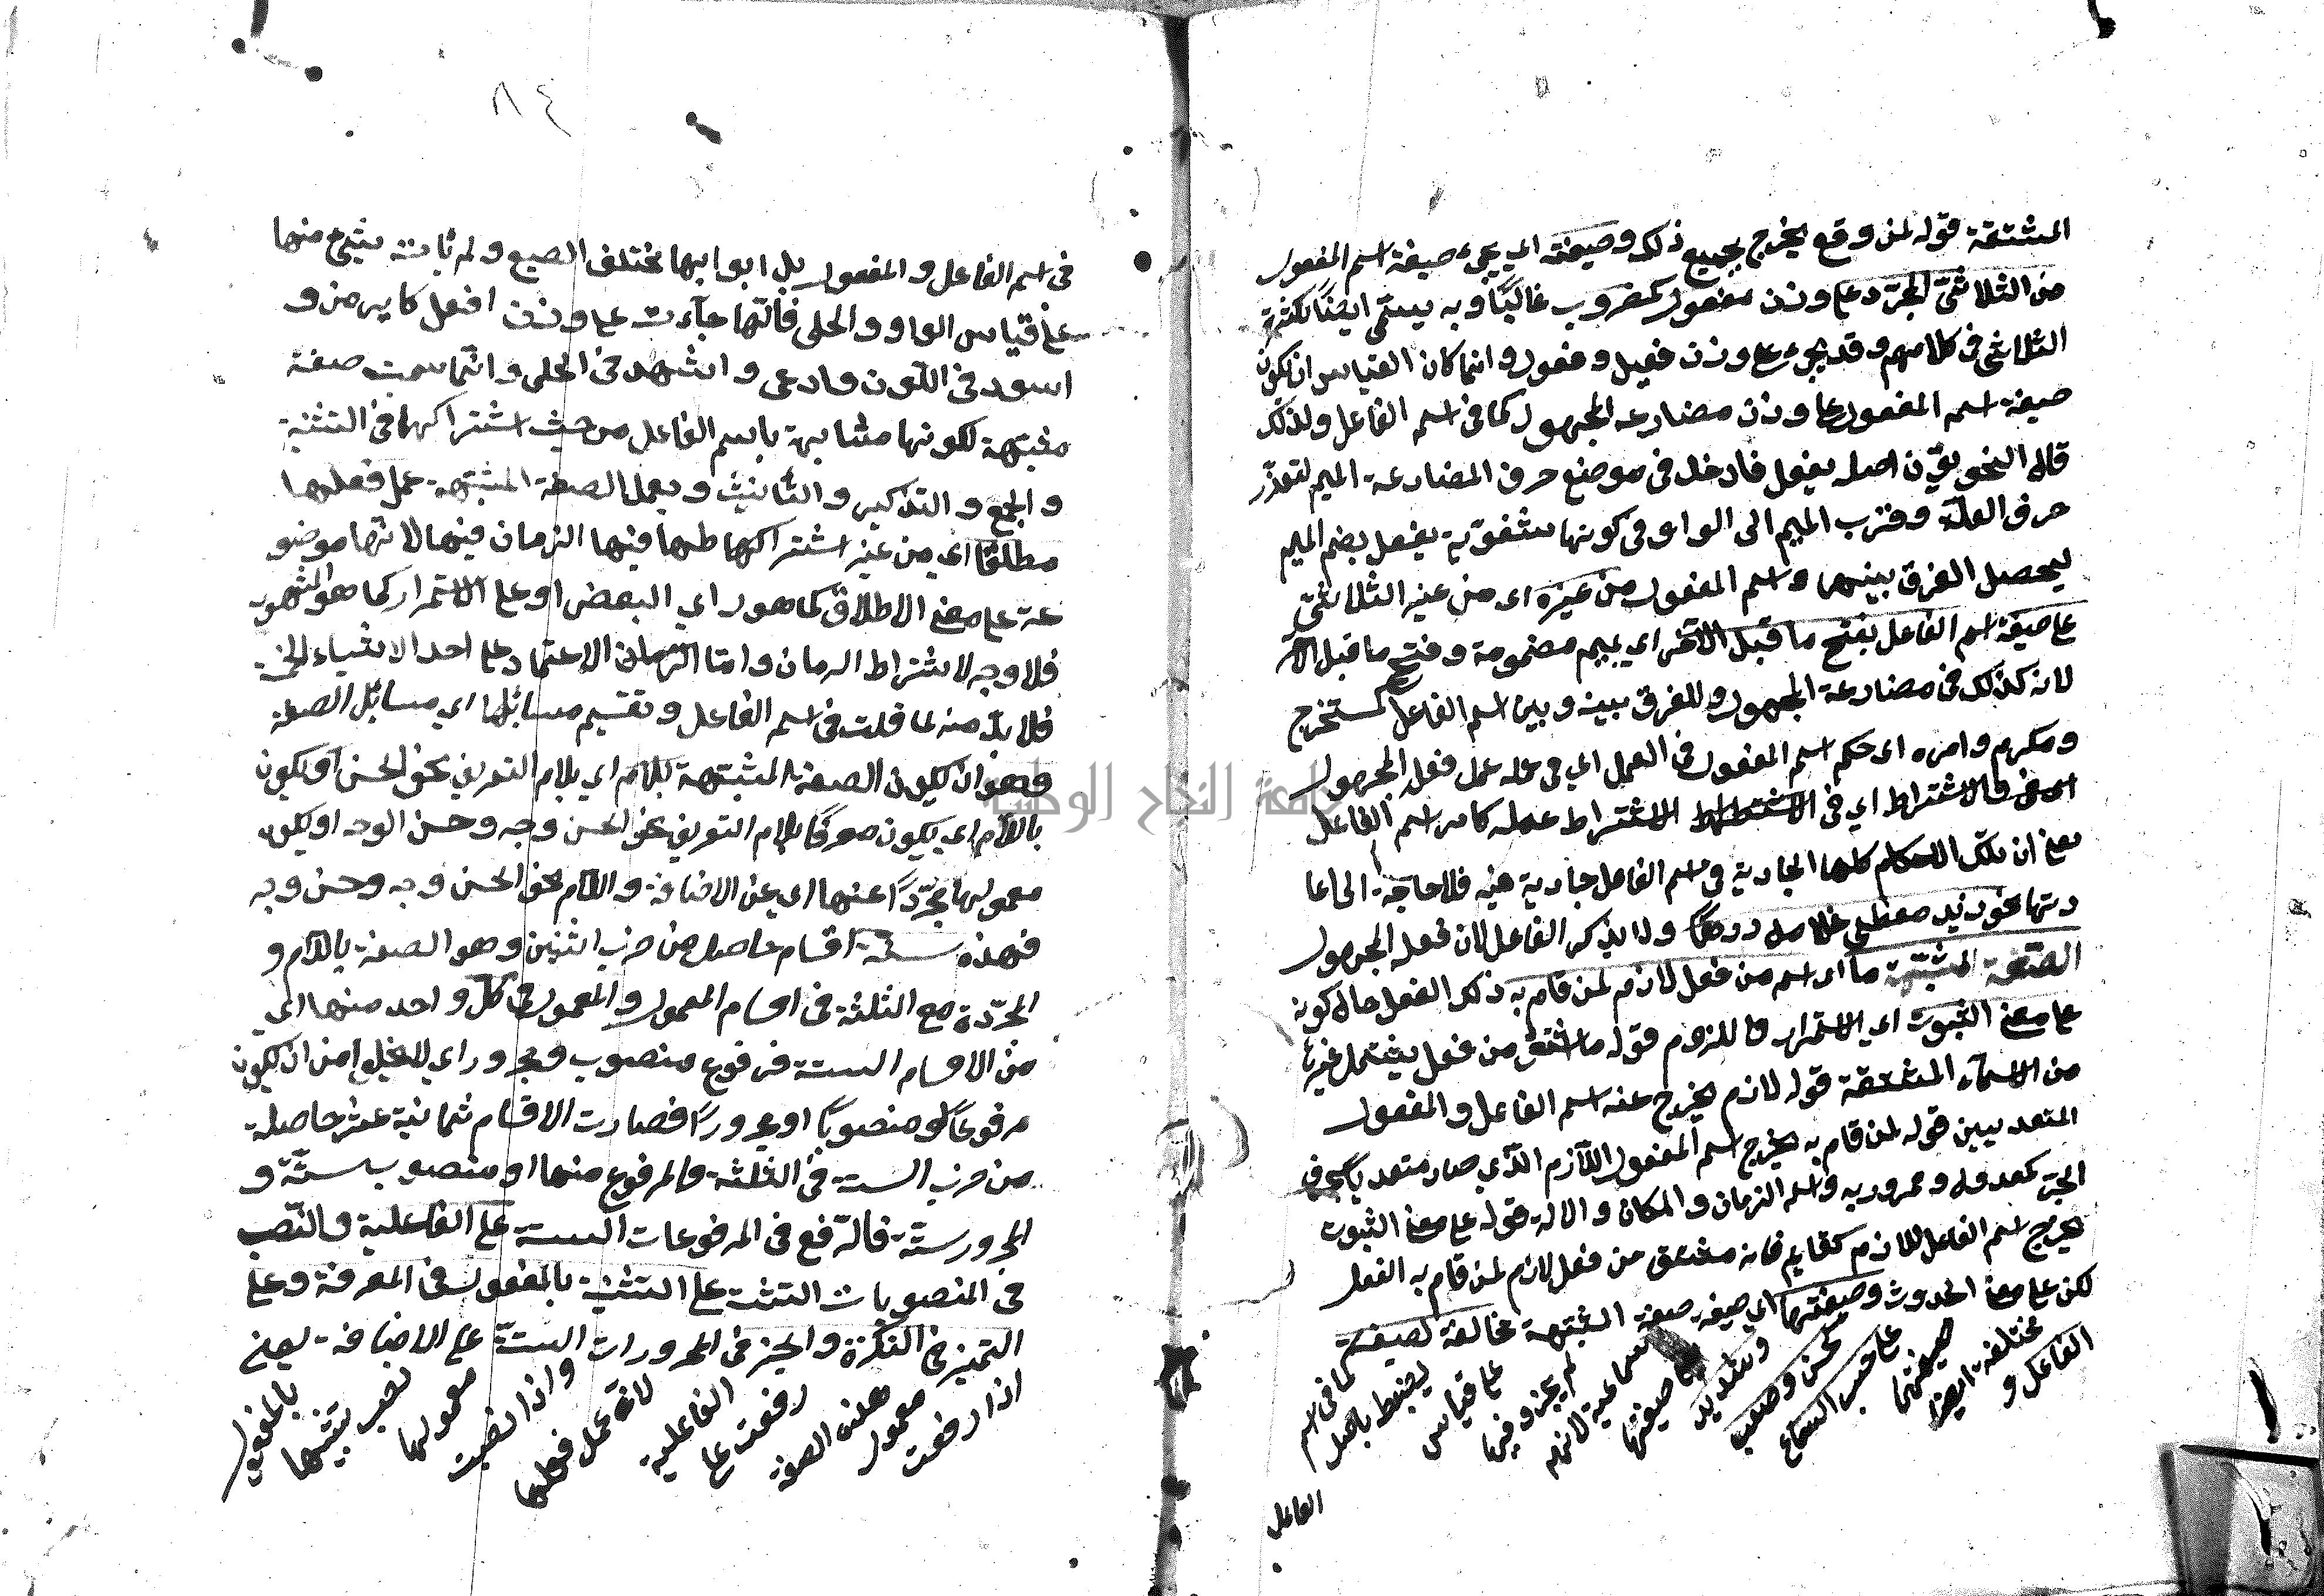 المشتقة قوله لمن وقع يخرج بجميع ذلك وصيغته اي يجيء صيغة اسم المفعول
من الثلاثيّ المجرّد على وزن مفعول كمضروب غالبًا وبه يسمّى ايضًا لكثرة
الثلاثي في كلامهم وقد يجيء على وزن فعيل وفعول وانما كان القياس ان يكون
صيغة اسم المفعول على وزن مضارعه المجهول كما في اسم الفاعل ولذلك
قال النحويّون اصله يفعل فادخل في موضع حرف المضارعة الميم لتعذّر
حرف العلّة وقرب الميم الى الواو في كونها شفويّة يفعل بضم الميم
ليحصل الفرق بينهما واسم المفعول من غيره اى من غير الثلاثيّ
على صيغة اسم الفاعل بفتح ما قبل الآخر اي بميم مضمومة وفتح ما قبل الآخر
لانه كذلك في مضارعة المجهول وللفرق بينه وبين اسم الفاعل كمستخرج
ومكرم وامره اى حكم اسم المفعول في العمل اي في عمله عمل فعل المجهول
والاشتراط اي في الاشتراط عمله كامر اسم الفاعل
يعني ان تلك الاحكام كلها الجارية في اسم الفاعل جارية فيه فلا حاجة الى اعا
دتها نحو زيد معطى غلامه درهمًا ولا يذكر الفاعل لان فعله المجهول
الصّفة المشبّهة ما اى اسم من فعل لازم لمن قام به ذلك الفعل حال كونه
على معنى الثبوت اى الاستمرار واللزوم قوله ما اشتق من فعل يشتمل غيرها
من الاسماء المشتقة قوله لازم يخرج عنه اسم الفاعل والمفعول
المتعديين قوله لمن قام به يخرج اسم المفعول اللّازم الذّي صار متعديا بحرف
الجرّ كمعدول وممرور به واسم الزمان والمكان والالة قوله على معنى الثبوت
يخرج اسم الفاعل اللازم كقايم فانه مشتق من فعل لازم لمن قام به الفعل
لكن على معنى الحدوث وصيغتها اي صيغة صفة المشبّهة مخالفة لصيغة
الفاعل و مختلفة ايضا صيغتها على حسب السماع كحسن وصعب وشديد صيغتها سماعية لانهم لم يجزو فيها على قياس يضبط باصل كما في اسم
الفاعل
٨٤
في اسم الفاعل والمفعول بل ابوابها مختلف الصيغ ولم يأت شيئ منها
على قياس الوا و والحلى فانّها جآءت على وزن افعل كابيض و
اسود في اللّون وادعى واشهد في الحلى وانّما سميت صفة
مشبّهة لكونها مشابهة باسم الفاعل من حيث اشتراكهما في التثنية
والجمع والتذكير والتأنيث ويعمل الصفة المشبّهة عمل فعلها
مطلقًا اي من غير اشتراكها فيها الزمان فيها لانّها موضو
عة على معنى الاطلاق كما هو راي البعض او على الاستمرار كما هو المشهور
فلا وجه لاشتراط الزمان وامّا الاعتماد على احد الاشياء الخمسة
فلا بدّ منه لما قلت في اسم الفاعل وتقسيم مسائلها اي مسائل الصفة
وهو ان يكون الصفة المشبّهة بلام اي بلام التعريف نحو الحسن او يكون
باللّام اي يكون معرفًا بلام التعريف نحو الحسن وجه وحسن الوجه او يكون
معمولها مجرّدًا عنها اى عن الاضافة واللّام نحو الحسن وجه وحسن وجه
فهذه ستّة اقسام حاصل من ضرب اثنين وهو الصفة باللّام و
المجرّدة مع الثلثة في اقسام المعمول والمعمول في كلّ واحد منها اي
من الاقسام الستة مرفوع منصوب ومجرور اي لا يخلو من ان يكون
مرفوعًا او منصوبًا او مجرورًا فصارت الاقسام ثمانية عشر حاصلة
من ضرب الستة في الثلثة والمرفوع منها او منصوب ستّة و
المجرور ستّة فالرّفع في المرفوعات الستة على الفاعلية والنّصب
في المنصوبات الستة على التشبيه بالمفعول في المعرفة وعلى
التميز في النكرة والجرّ في المجرورات الستّة على الاضافة يعني
اذا رفعت معمول هذه الصفة رفعت على الفاعلية لانّه عمل فعلها واذا نصبت معمولها نصب تشبيها بالمفعول
جامعة النجاح الوطنية